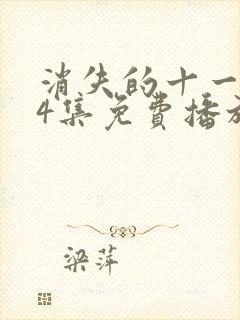 消失的十一
4集免费播放
梁萍